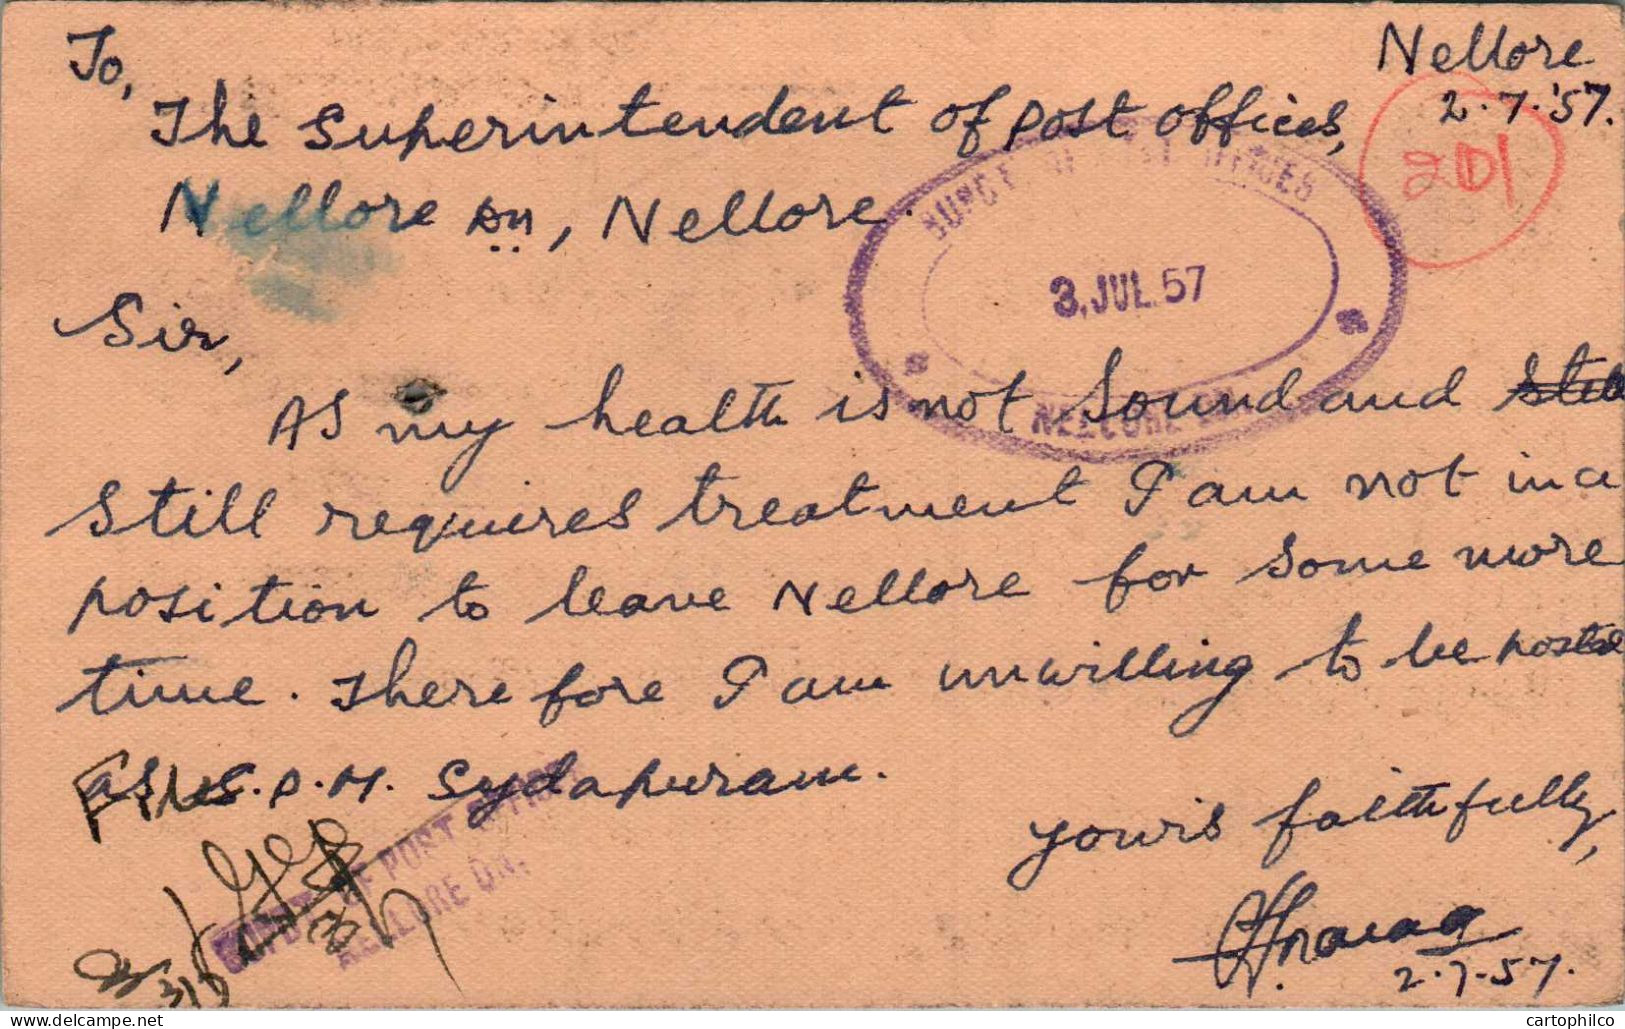 Nellore
2.7.'57.
To,
The Superintendent of post offices,
Nellore Dn, Nellore.
201
SUPDT OF POST OFFICES
3. JUL. 57
NELLORE DN.
Sir,
As my health is not sound and
still requires treatment I am not in a
position to leave Nellore for some more
time. Therefore I am unwilling to be posted
as S.P.M. Sydapuram.
File
yours faithfully,
2.7.57.
SUPDT. OF POST OFFICES
NELLORE DN.
3/7
cartophilco